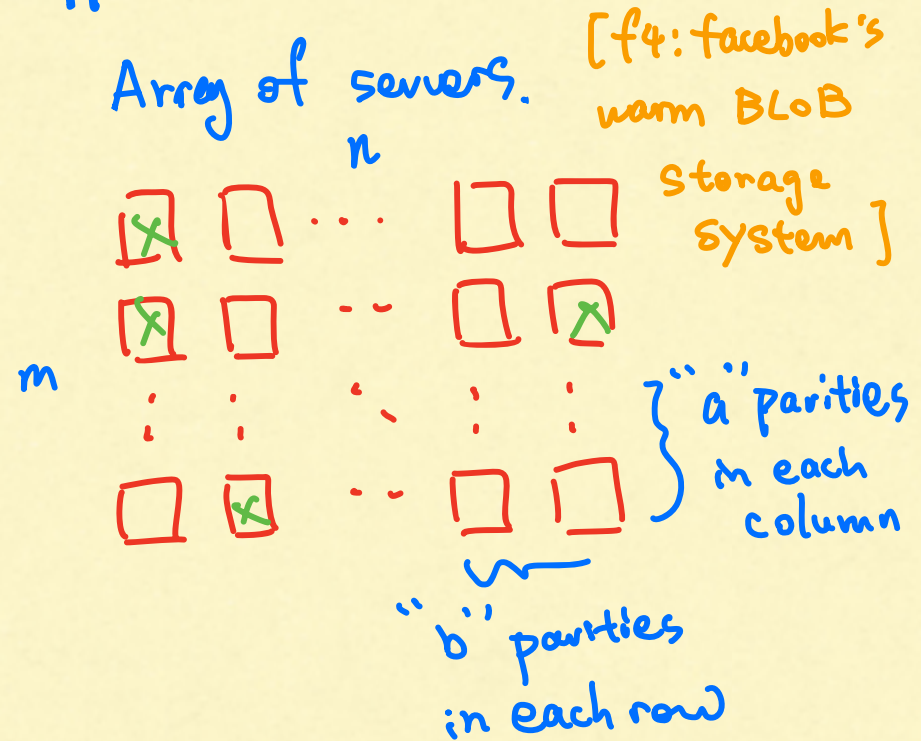 Array of servers.
[f4: facebook's
warm BLOB
storage
system]
n
m
"a" parities
in each
column
"b" parities
in each row